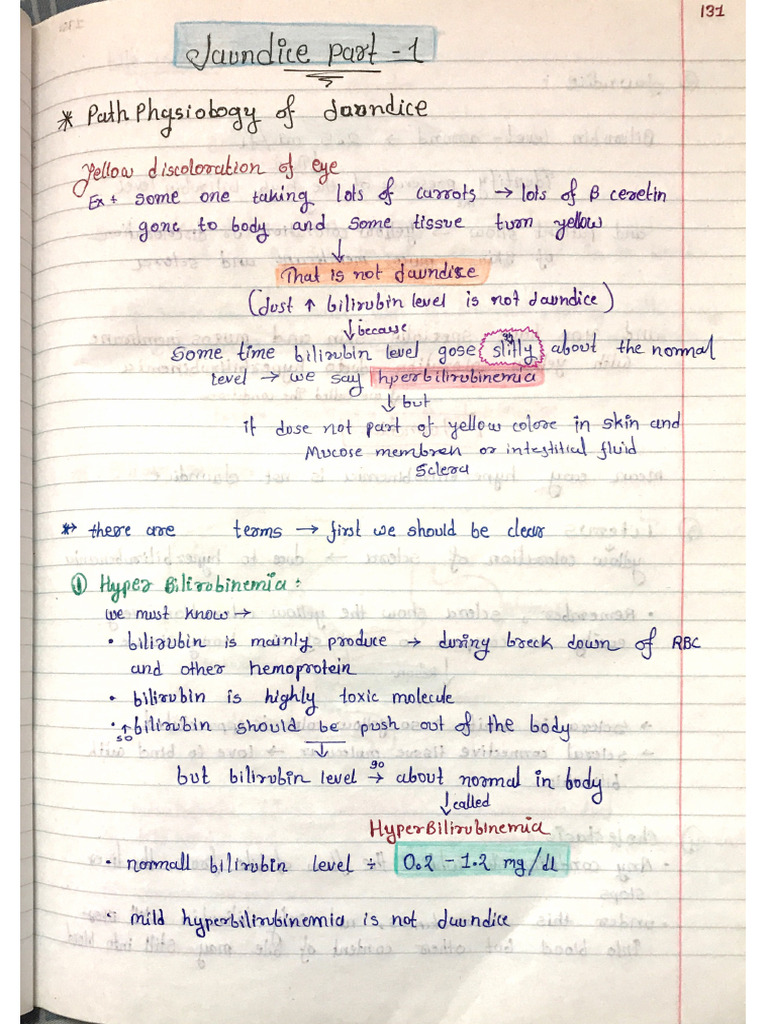 131
Jaundice part - 1
* Path Physiology of Jaundice
Yellow discoloration of eye
Ex + some one taking lots of carrots → lots of β ceretin
gone to body and some tissue turn yellow
↓
That is not Jaundice
(Just ↑ bilirubin level is not Jaundice)
↓ because
Some time bilirubin level gose slitly about the normal
level → we say hperbilirubinemia
↓ but
it dose not part of yellow colore in skin and
Mucose membren or intestitial fluid
Sclera
** there are terms → first we should be clear
① Hyper Bilirubinemia :
we must know →
• bilirubin is mainly produce → during breck down of RBC
and other hemoprotein
• bilirubin is highly toxic molecule
• ↑ bilirubin should be push out of the body
so
↓
but bilirubin level go → about normal in body
↓ called
HyperBilirubinemia
• normall bilirubin level ÷ 0.2 - 1.2 mg/dl
• mild hyperbilirubinemia is not Jaundice